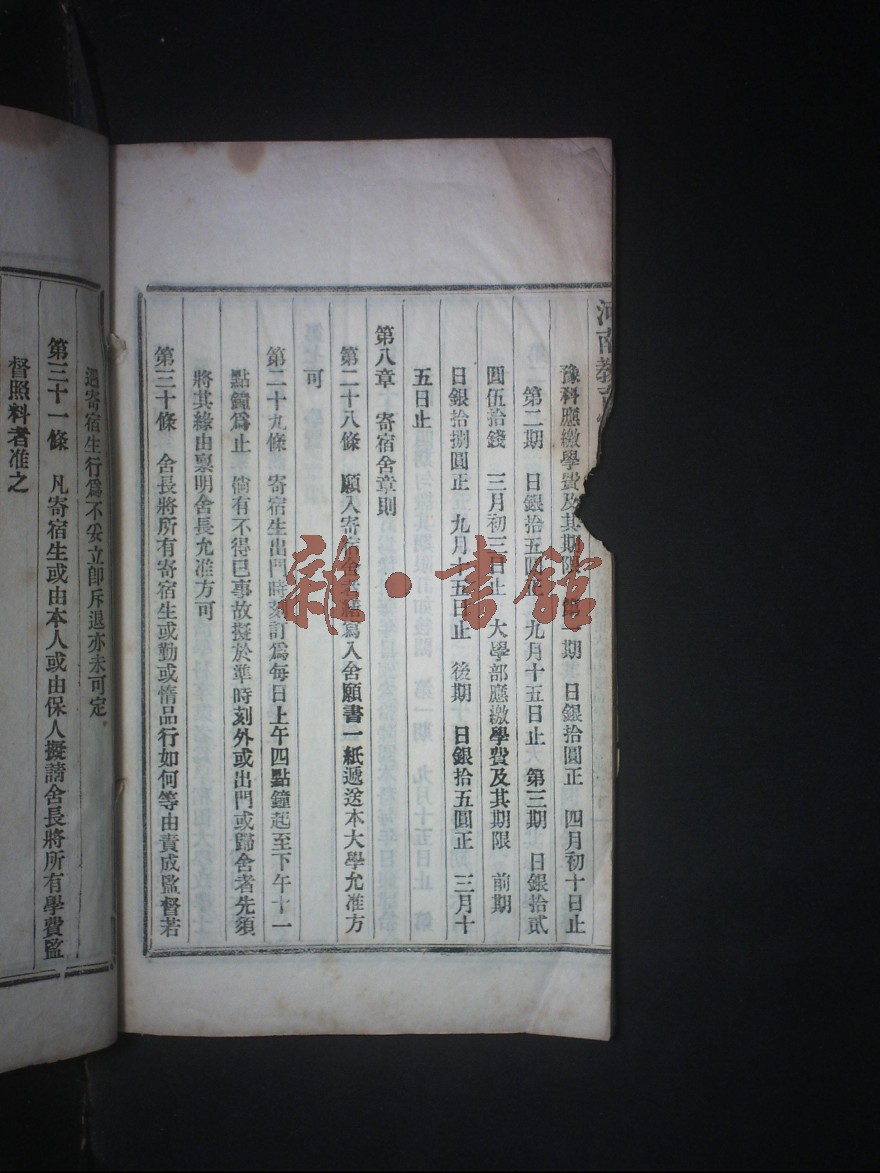 河南教育
豫科應繳學費及其期限 第一期 日銀拾圓正 四月初十日止
第二期 日銀拾五圓正 九月十五日止 第三期 日銀拾貳
圓伍拾錢 三月初三日止 大學部應繳學費及其期限 前期
日銀拾捌圓正 九月十五日止 後期 日銀拾五圓正 三月十
五日止
第八章 寄宿舍章則
第二十八條 願入寄宿舍者繕寫入舍願書一紙遞送本大學允准方
可
第二十九條 寄宿生出門時刻訂爲每日上午四點鐘起至下午十一
點鐘爲止 倘有不得已事故擬於準時刻外或出門或歸舍者先須
將其緣由稟明舍長允准方可
第三十條 舍長將所有寄宿生或勤或惰品行如何等由責成監督若
遇寄宿生行爲不妥立卽斥退亦未可定。
第三十一條 凡寄宿生或由本人或由保人擬請舍長將所有學費監
督照料者准之
雜·書館